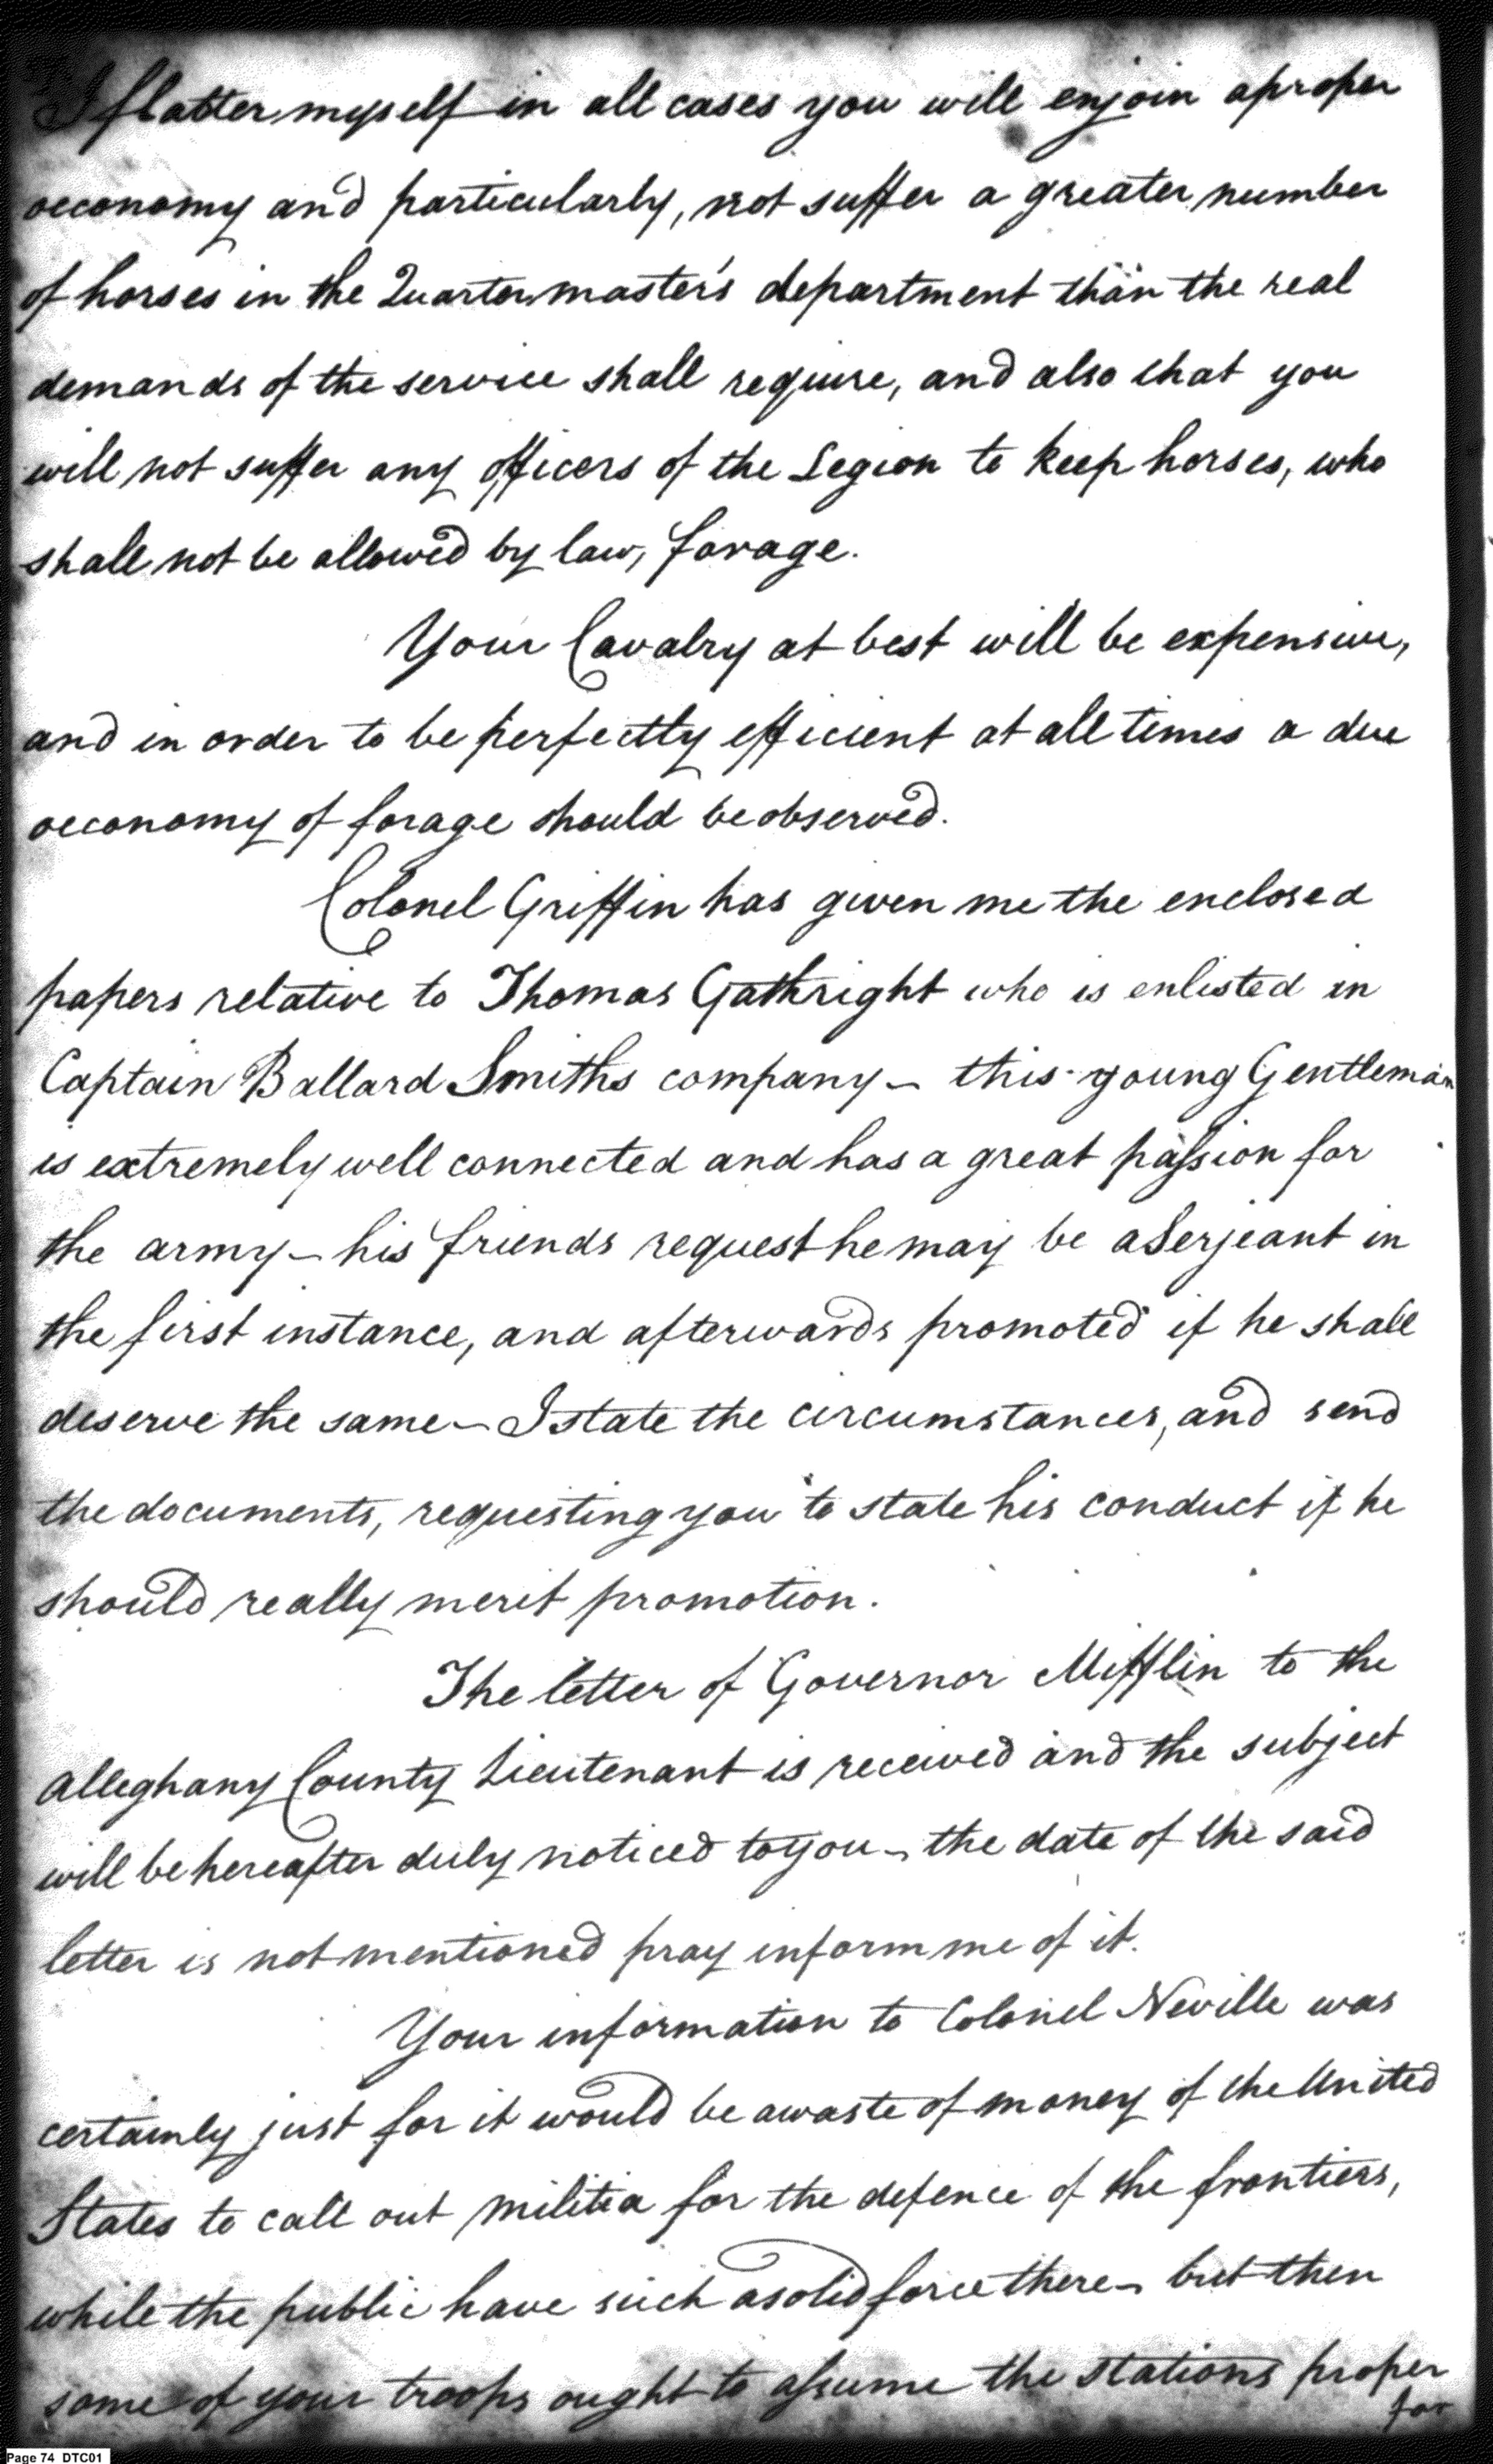 I flatter myself in all cases you will enjoin a proper
oeconomy and particularly, not suffer a greater number
of horses in the Quartermaster's department than the real
demands of the service shall require, and also that you
will not suffer any officers of the Legion to keep horses, who
shall not be allowed by law, forage.
Your Cavalry at best will be expensive,
and in order to be perfectly efficient at all times a due
oeconomy of forage should be observed.
Colonel Griffin has given me the enclosed
papers relative to Thomas Gathright who is enlisted in
Captain Ballard Smiths company – this young Gentleman
is extremely well connected and has a great passion for
the army – his friends request he may be a Serjeant in
the first instance, and afterwards promoted if he shall
deserve the same – I state the circumstances, and send
the documents, requesting you to state his conduct if he
should really merit promotion.
The letter of Governor Mifflin to the
Alleghany County Lieutenant is received and the subject
will be hereafter duly noticed to you – the date of the said
letter is not mentioned pray inform me of it.
Your information to Colonel Neville was
certainly just for it would be a waste of money of the United
States to call out militia for the defence of the frontiers,
while the public have such a solid force there – but then
some of your troops ought to assume the stations proper
for
Page 74 DTC01